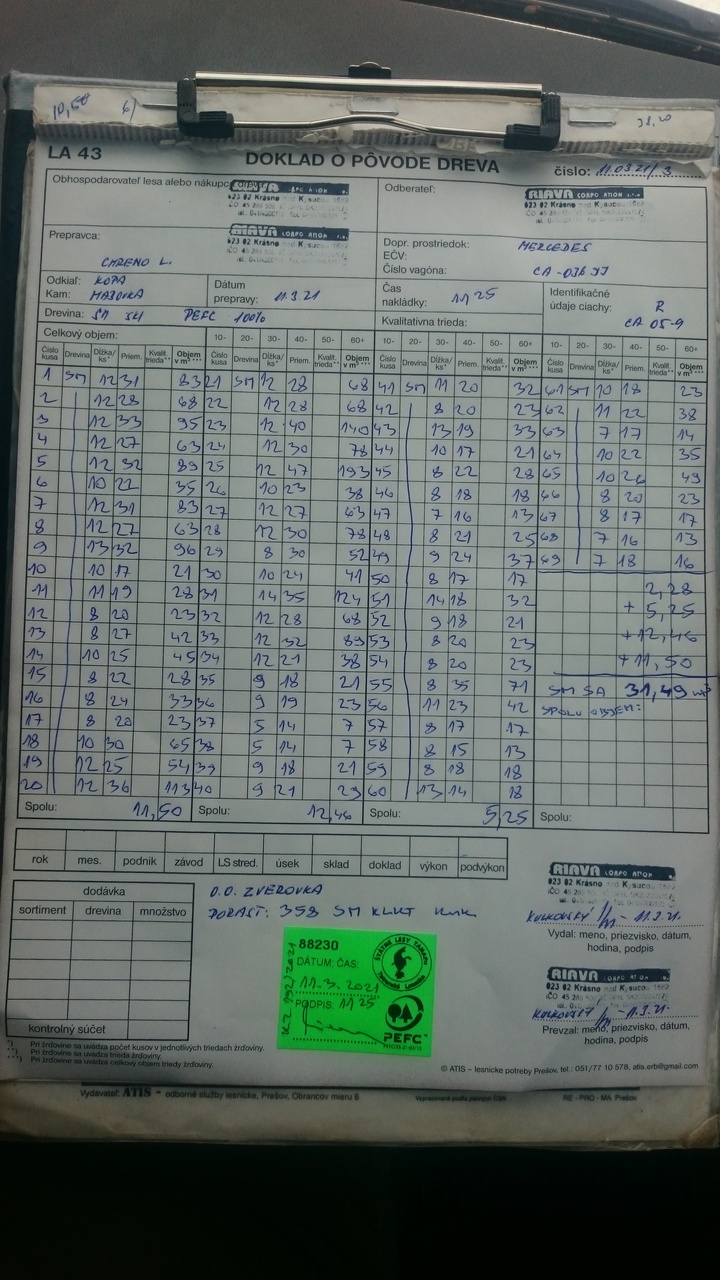 10,50 6/ 38,20
LA 43 DOKLAD O PÔVODE DREVA číslo: 11.03.21/3
Obhospodarovateľ lesa alebo nákupca dreva: Odberateľ: RIAVA CORPO ATION
023 02 Krásno
RIAVA CORPO ATION
023 02 Krásno
Prepravca: CHRENO L. Dopr. prostriedok: MERCEDES
EČV:
Číslo vagóna: CA-036 JJ
Odkiaľ: KOPA Dátum Čas Identifikačné
Kam: prepravy: 11.3.21 nakládky: 11 25 údaje ciachy: R
Drevina: SM PEFC 100% Kvalitatívna trieda: CA 05-9
Celkový objem: 10- 20- 30- 40- 50- 60+ 10- 20- 30- 40- 50- 60+ 10- 20- 30- 40- 50- 60+
Číslo kusa Drevina Dĺžka/ks* Priem. Kvalit. trieda** Objem v m³*** Číslo kusa Drevina Dĺžka/ks* Priem. Kvalit. trieda** Objem v m³*** Číslo kusa Drevina Dĺžka/ks* Priem. Kvalit. trieda** Objem v m³*** Číslo kusa Drevina Dĺžka/ks* Priem. Kvalit. trieda** Objem v m³***
1 SM 12 31 83 21 SM 12 28 68 41 SM 11 20 32 61 SM 10 18 23
2 12 28 68 22 12 28 68 42 8 20 23 62 11 22 38
3 12 33 95 23 12 40 140 43 13 19 33 63 7 17 14
4 12 27 63 24 12 30 78 44 10 17 21 64 10 22 35
5 12 32 89 25 12 47 193 45 8 22 28 65 10 26 49
6 10 21 35 26 10 23 38 46 8 18 18 66 8 20 23
7 12 31 83 27 12 27 63 47 7 16 13 67 8 17 17
8 12 27 63 28 12 30 78 48 8 21 25 68 7 16 13
9 13 32 96 29 8 30 52 49 9 24 37 69 7 18 16
10 10 17 21 30 10 24 41 50 8 17 17 2,28
11 11 19 28 31 14 35 124 51 14 18 32 + 5,25
12 8 20 23 32 12 28 68 52 9 18 21 + 12,46
13 8 27 42 33 12 32 89 53 8 20 23 + 11,50
14 10 25 45 34 12 21 38 54 8 20 23
15 8 22 28 35 9 18 21 55 8 35 71 SM SA 31,49 m³
16 8 24 33 36 9 19 23 56 11 23 42 SPOLU OBJEM:
17 8 20 23 37 5 14 7 57 8 17 17
18 10 30 65 38 5 14 7 58 8 15 13
19 12 25 54 39 9 18 21 59 8 18 18
20 12 36 113 40 9 21 29 60 13 14 18
Spolu: 11,50 Spolu: 12,46 Spolu: 5,25 Spolu:
rok mes. podnik závod LS stred. úsek sklad doklad výkon podvýkon
dodávka
sortiment drevina množstvo
kontrolný súčet
O.O. ZVEROVKA
PORAST: 358 SM
88230
DÁTUM, ČAS:
11.3.2021
PODPIS: 11 25
ŠTÁTNE LESY TANAPU
PEFC
RIAVA CORPO ATION
023 02 Krásno
11.3.21.
Vydal: meno, priezvisko, dátum,
hodina, podpis
RIAVA CORPO ATION
023 02 Krásno
11.3.21.
Prevzal: meno, priezvisko, dátum,
hodina, podpis
Pri žrďovine sa uvádza počet kusov v jednotlivých triedach žrďoviny.
Pri žrďovine sa uvádza trieda žrďoviny.
Pri žrďovine sa uvádza celkový objem triedy žrďoviny.
© ATIS – lesnícke potreby Prešov, tel.: 051/77 10 578, atis.erb@gmail.com
Vydavateľ: ATIS - odborné služby lesnícke, Prešov, Obrancov mieru 6 RE - PRO - MA Prešov